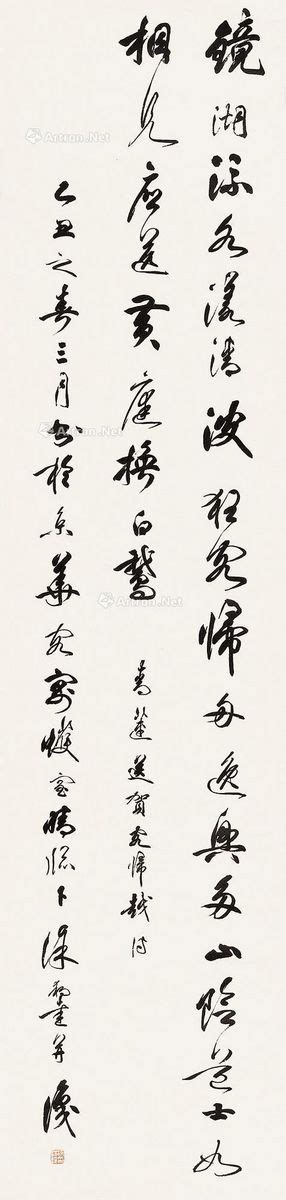 鏡湖流水漾清波狂客歸舟逸興多山陰道士如
相見應寫黃庭換白鵝
青蓮送賀客歸越詩
乙丑之春三月書於京華客寓室晴窗下徐并識
Artron.Net
Artron.Net
Artron.Net